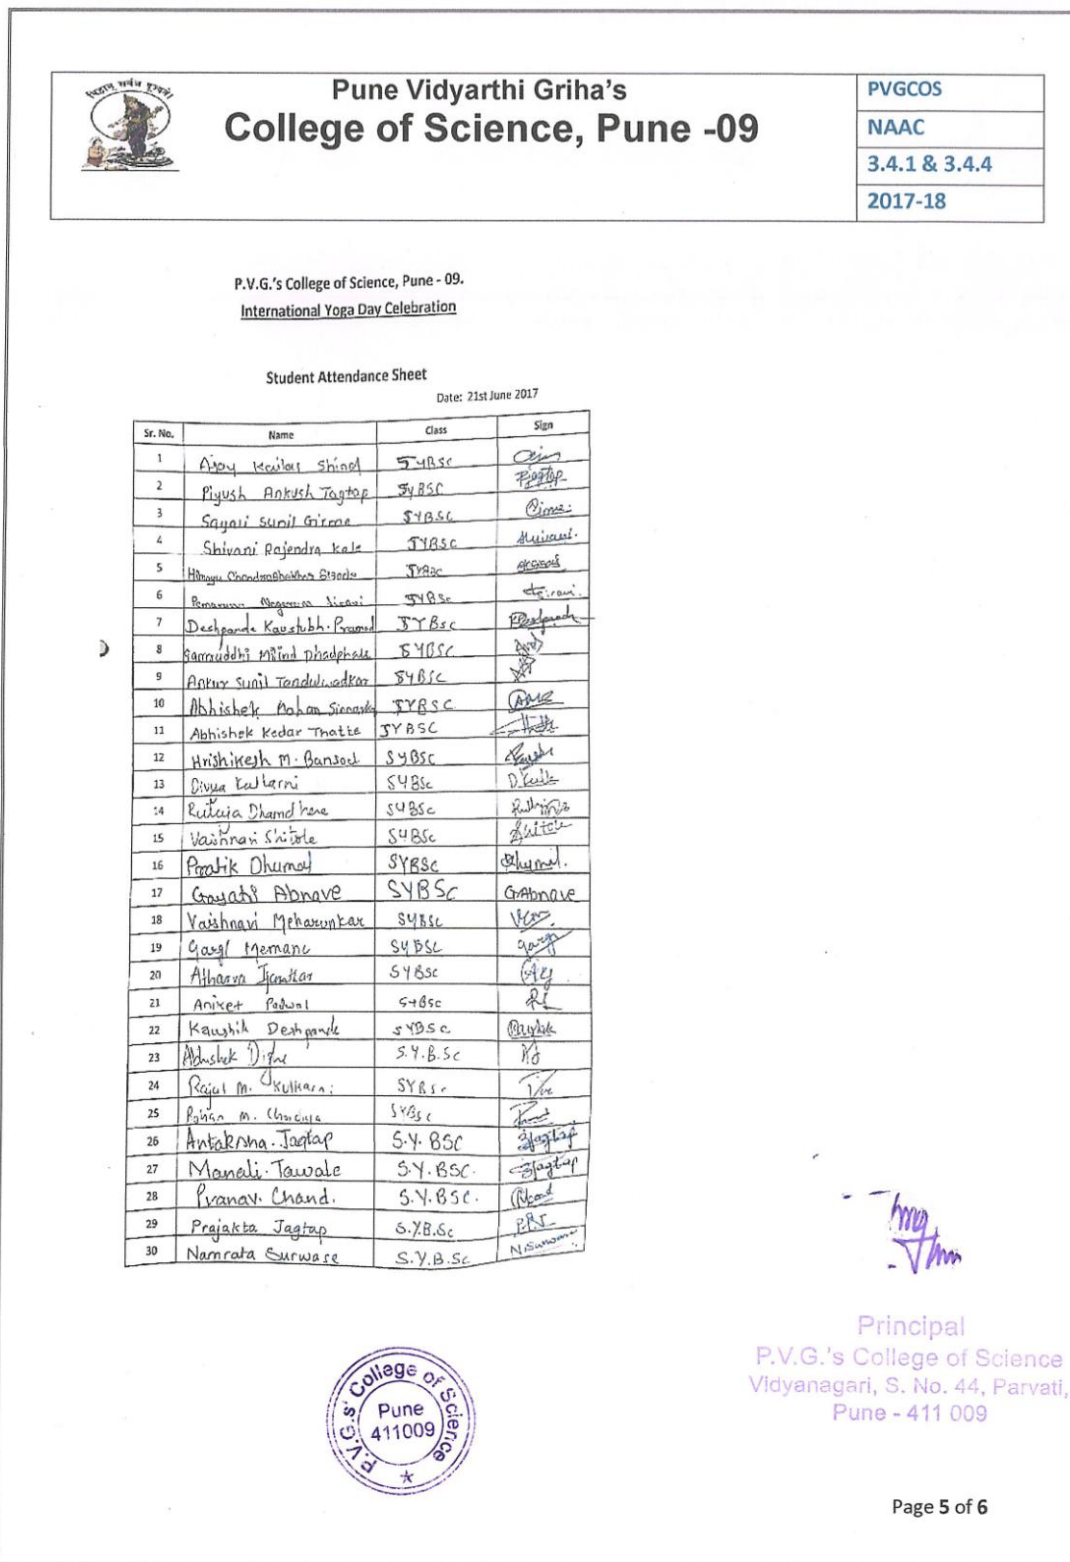 Pune Vidyarthi Griha's
College of Science, Pune -09
PVGCOS
NAAC
3.4.1 & 3.4.4
2017-18
P.V.G.'s College of Science, Pune - 09.
International Yoga Day Celebration
Student Attendance Sheet
Date: 21st June 2017
Sr. No. Name Class Sign
1 Ajay Kailas Shind SYBSc
2 Piyush Ankush Jagtap SyBSC Pjagtap
3 Sayali Sunil Girme SYBSC
4 Shivani Rajendra Kale SYBSC Shivani.
5 SYBSC
6 SYBSc
7 Deshpande Kaustubh. Pramod SYBSc
8 Samruddhi Milind Phadphale SYBSC
9 Ankur Sunil Tandulwadkar SYBSC
10 Abhishek Mohan SYBSC
11 Abhishek Kedar Thatte SYBSC
12 Hrishikesh M. Bansod SYBSC
13 Divya Kulkarni SYBSc D.Kulk
14 Rutuja Dhamdhere SYBSc
15 Vaishnavi Shitole SYBSc
16 Pratik Dhumal SYBSC
17 Gayatri Abnave SYBSC G.Abnave
18 Vaishnavi Meharunkar SYBSC
19 Gargi Memane SYBSC Gargi
20 Atharva SYBSC
21 Aniket Padwal SYBSC
22 Kaushik Deshpande SYBSC
23 Abhishek Dighe S.Y.B.Sc
24 Rajul M. Kulkarni SYBSc
25 Rohan M. SYBSC
26 Antaksha. Jagtap S.Y. BSC Jagtap
27 Manali. Tawale S.Y. BSC. Jagtap
28 Pranav. Chand. S.Y. BSC.
29 Prajakta Jagtap S.Y.B.Sc P.R.J
30 Namrata Surwase S.Y.B.Sc N.Surwase
Principal
P.V.G.'s College of Science
Vidyanagari, S. No. 44, Parvati,
Pune - 411 009
P.V.G.s' College of Science
Pune
411009
Page 5 of 6